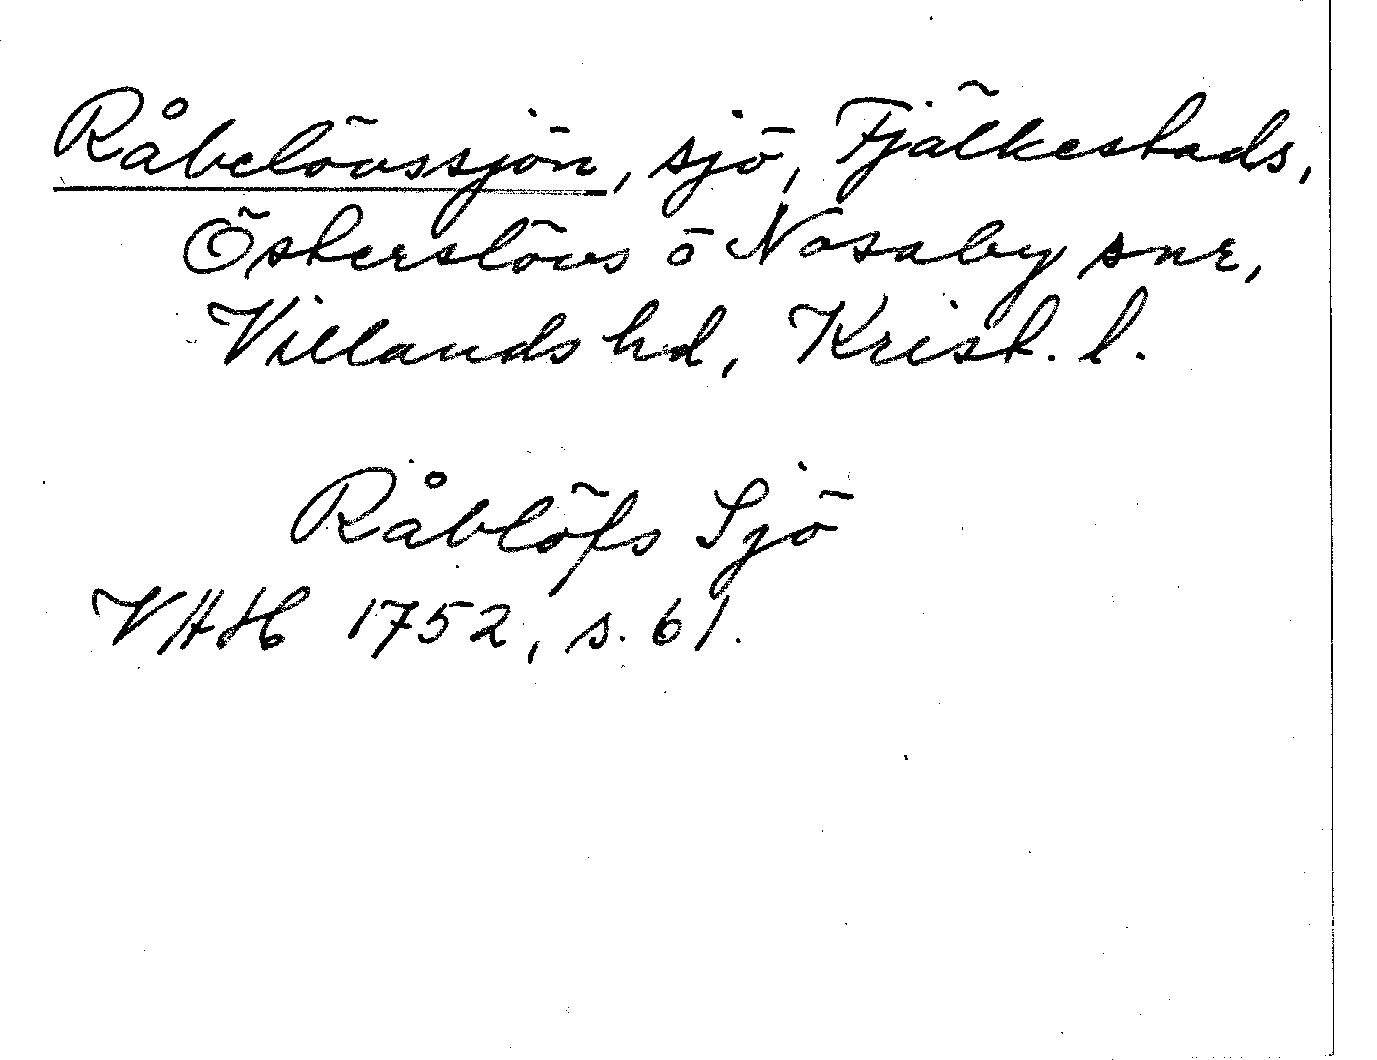 Råbelövssjön, sjö, Fjälkestads,
Österslövs o Nosaby snr,
Villands hd, Krist. l.
Råblöfs Sjö
VHH 1752, s. 61.